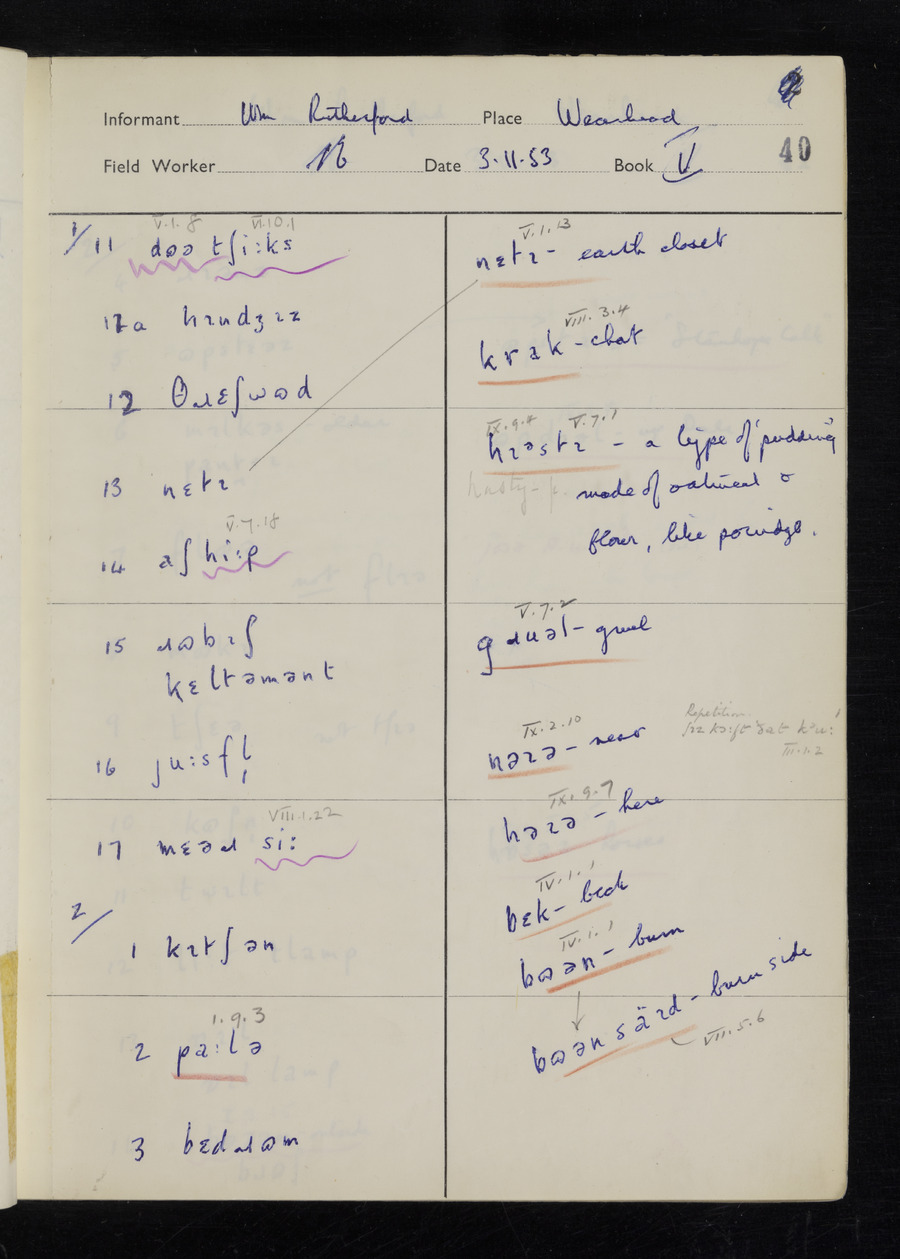 Informant Wm Rutherford Place Wearhead
Field Worker Date 3.11.53 Book V
40
V.1.8 VI.10.1
1/ 11 dɷə tʃi:ks
12a hɪndʒɪz
12 θɹɛʃwɷd
13 nɛtɪ
V.7.18
14 aʃ hi:p
15 ɹɷbɪʃ
kɛltəmənt
16 ju:sfl̩
VIII.1.22
17 mɛəɹ si:
2/
1 kɪtʃən
1.9.3
2 pa:lə
3 bɛdɹɷm
V.1.13
nɛtɪ - earth closet
VIII.3.4
kɾak - chat
IX.9.7 V.7.1
hɪəstɪ - a type of 'pudding'
hasty-p. made of oatmeal &
flour, like porridge.
V.7.2
gɹuəl - gruel
IX.2.10
nəɪə - near
Repetition.
III.1.2
IX.9.7
həɪə - here
IV.1.1
bɛk - beck
IV.1.1
bɷən - burn
bɷən säɪd - burn side
VII.5.6